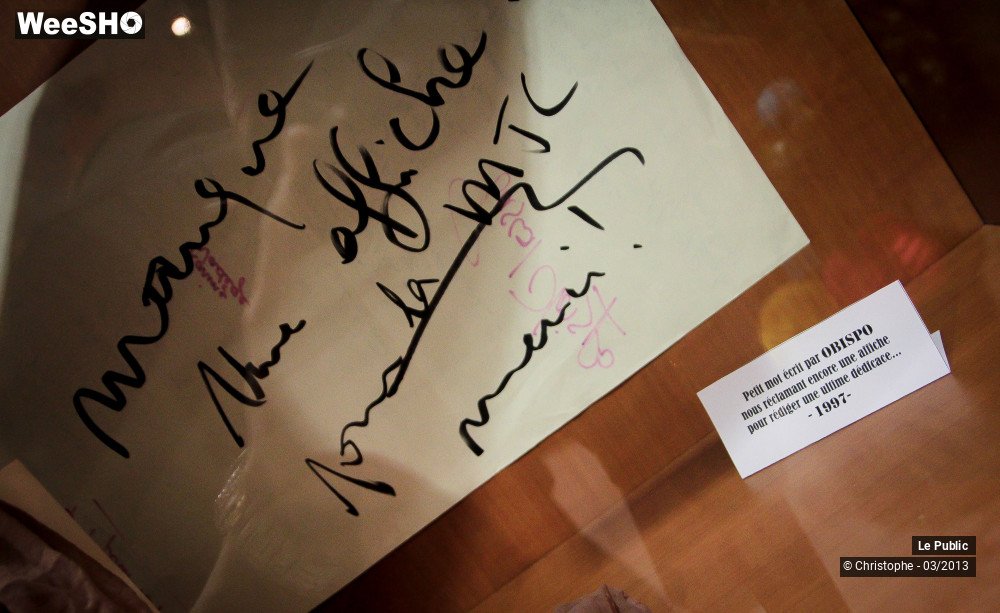 WeeSHO
manque
une affiche
pour la MJC
merci !
Petit mot écrit par OBISPO
nous réclamant encore une affiche
pour rédiger une ultime dédicace...
- 1997-
Le Public
© Christophe - 03/2013